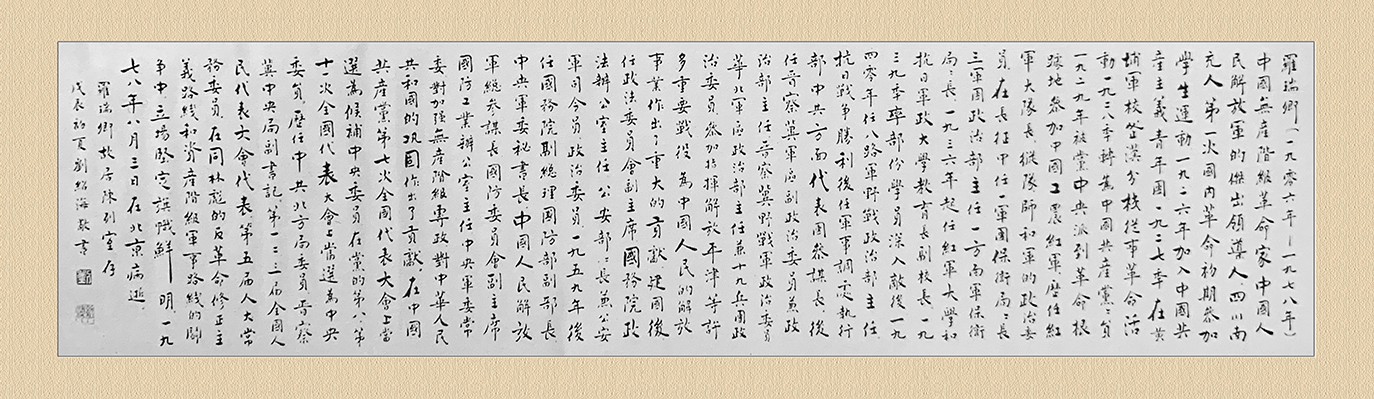 羅瑞卿(一九零六年—一九七八年)
中國無產階級革命家、中國人
民解放軍的傑出領導人、四川南
充人。第一次國內革命初期參加
學生運動一九二六年加入中國共
產主義青年團一九二七年在黃
埔軍校武漢分校從事革命活
動一九二八年轉為中國共產黨黨員
一九二九年被黨中央派到革命根
據地參加中國工農紅軍歷任紅
軍大隊長縱隊師和軍的政治委
員在長征中任一軍團保衛局局長
三軍團政治部主任一方面軍保衛
局局長、一九三六年起任紅軍大學和
抗日軍政大學教育長副校長、一九
三九年率部份學員深入敵後一九
四零年任八路軍野戰政治部主任
抗日戰爭勝利後任軍事調處執行
部中共方面代表團參謀長、後
任晉察冀軍區副政治委員兼政
治部主任晉察冀野戰軍政治委員
華北軍區政治部主任兼十九兵團政
治委員參加指揮解放平津等許
多重要戰役為中國人民的解放
事業作出了重大的貢獻、建國後
任政法委員會副主席國務院政
法辦公室主任公安部部長兼公安
軍司令員政治委員、一九五九年後
任國務院副總理國防部副部長
中央軍委秘書長中國人民解放
軍總參謀長國防委員會副主席
國防工業辦公室主任中央軍委常
委對加強無產階級專政對中華人民
共和國的巩固作出了貢獻、在中國
共產黨第七次全國代表大會上當
選為候補中央委員在黨的第八、第
十一次全國代表大會上當選為中央
委員歷任中共北方局委員晉察
冀中央局副書記、第一二三屆全國人
民代表大會代表、第五屆人大常
務委員、在同林彪的反革命修正主
義路線和資產階級軍事路線的鬪
爭中立場堅定旗幟鮮明、一九
七八年八月三日在北京病逝、
羅瑞卿故居陳列室存
戊辰初夏劉紹海敬書